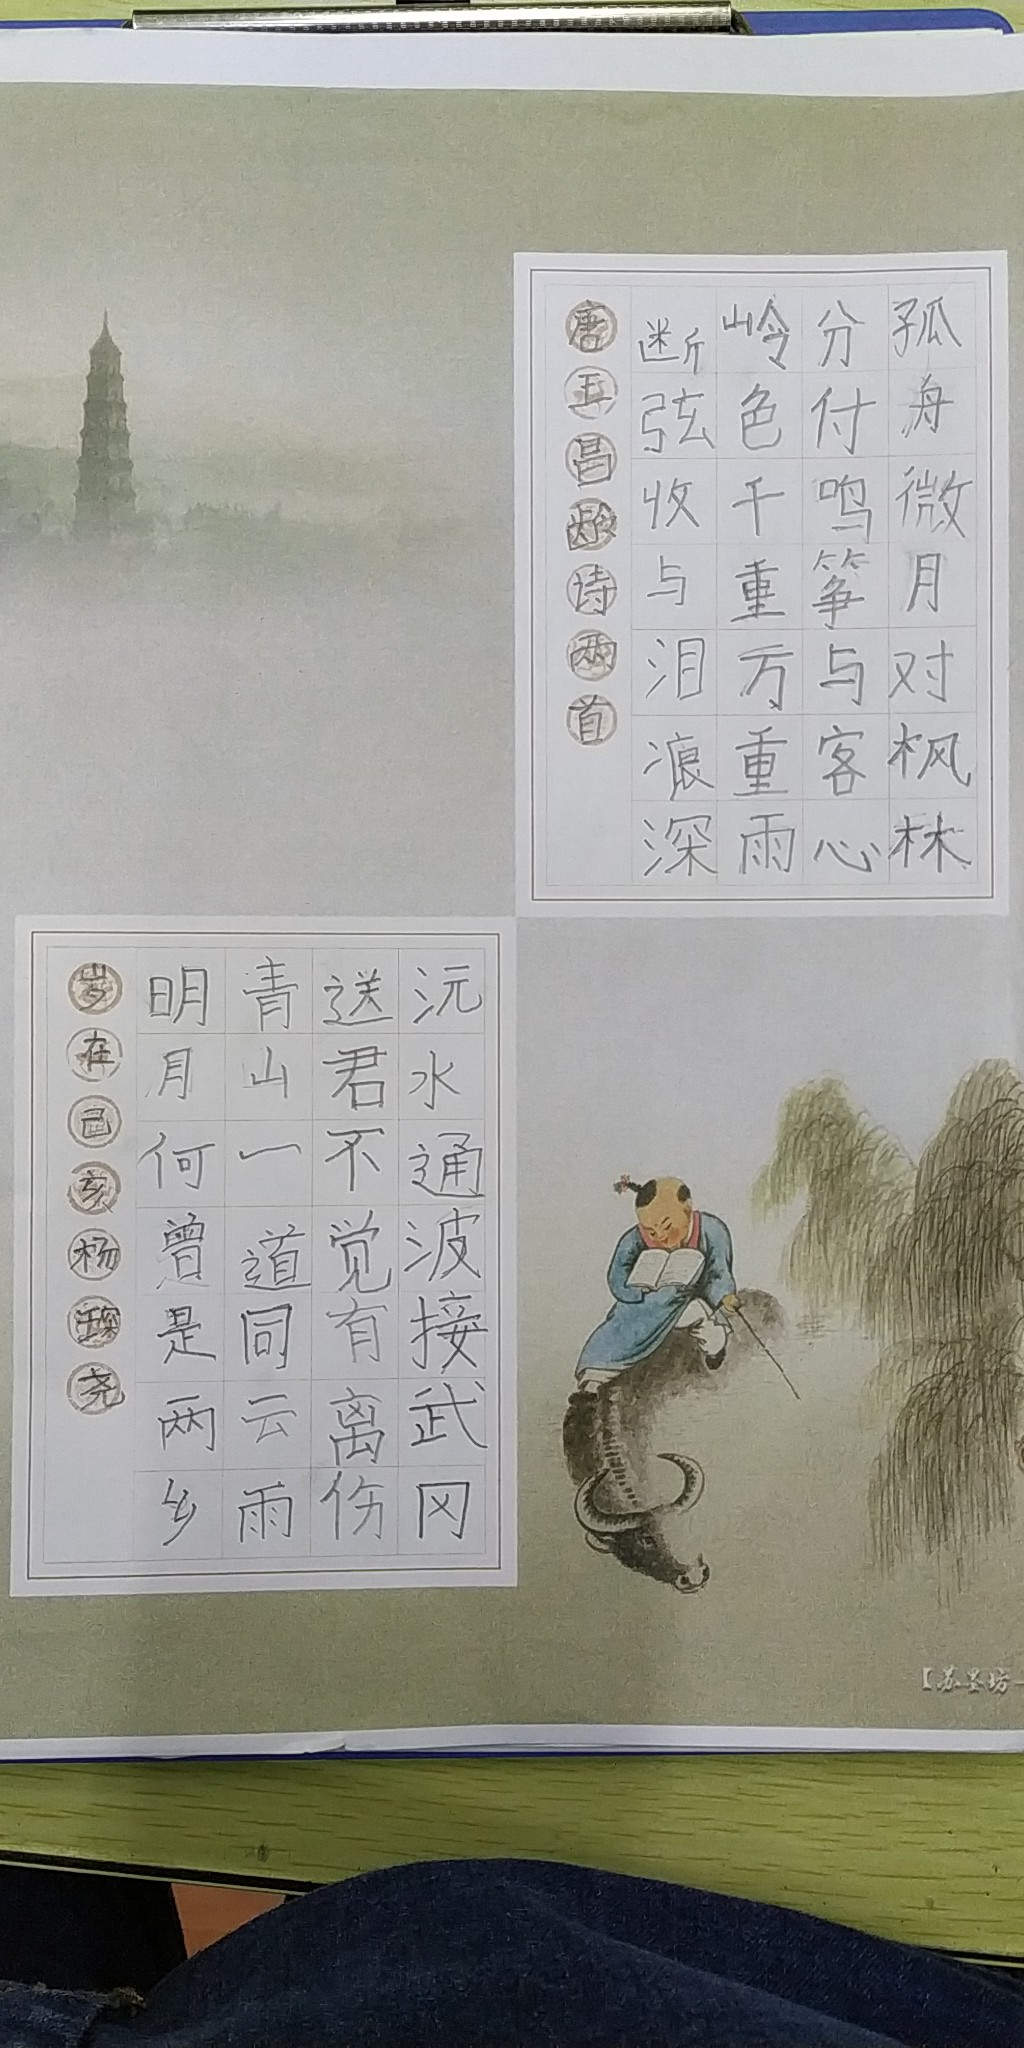 孤舟微月对枫林
分付鸣筝与客心
岭色千重万重雨
断弦收与泪痕深
唐王昌龄诗两首
沅水通波接武冈
送君不觉有离伤
青山一道同云雨
明月何曾是两乡
岁在己亥杨琛尧
【苏墨坊